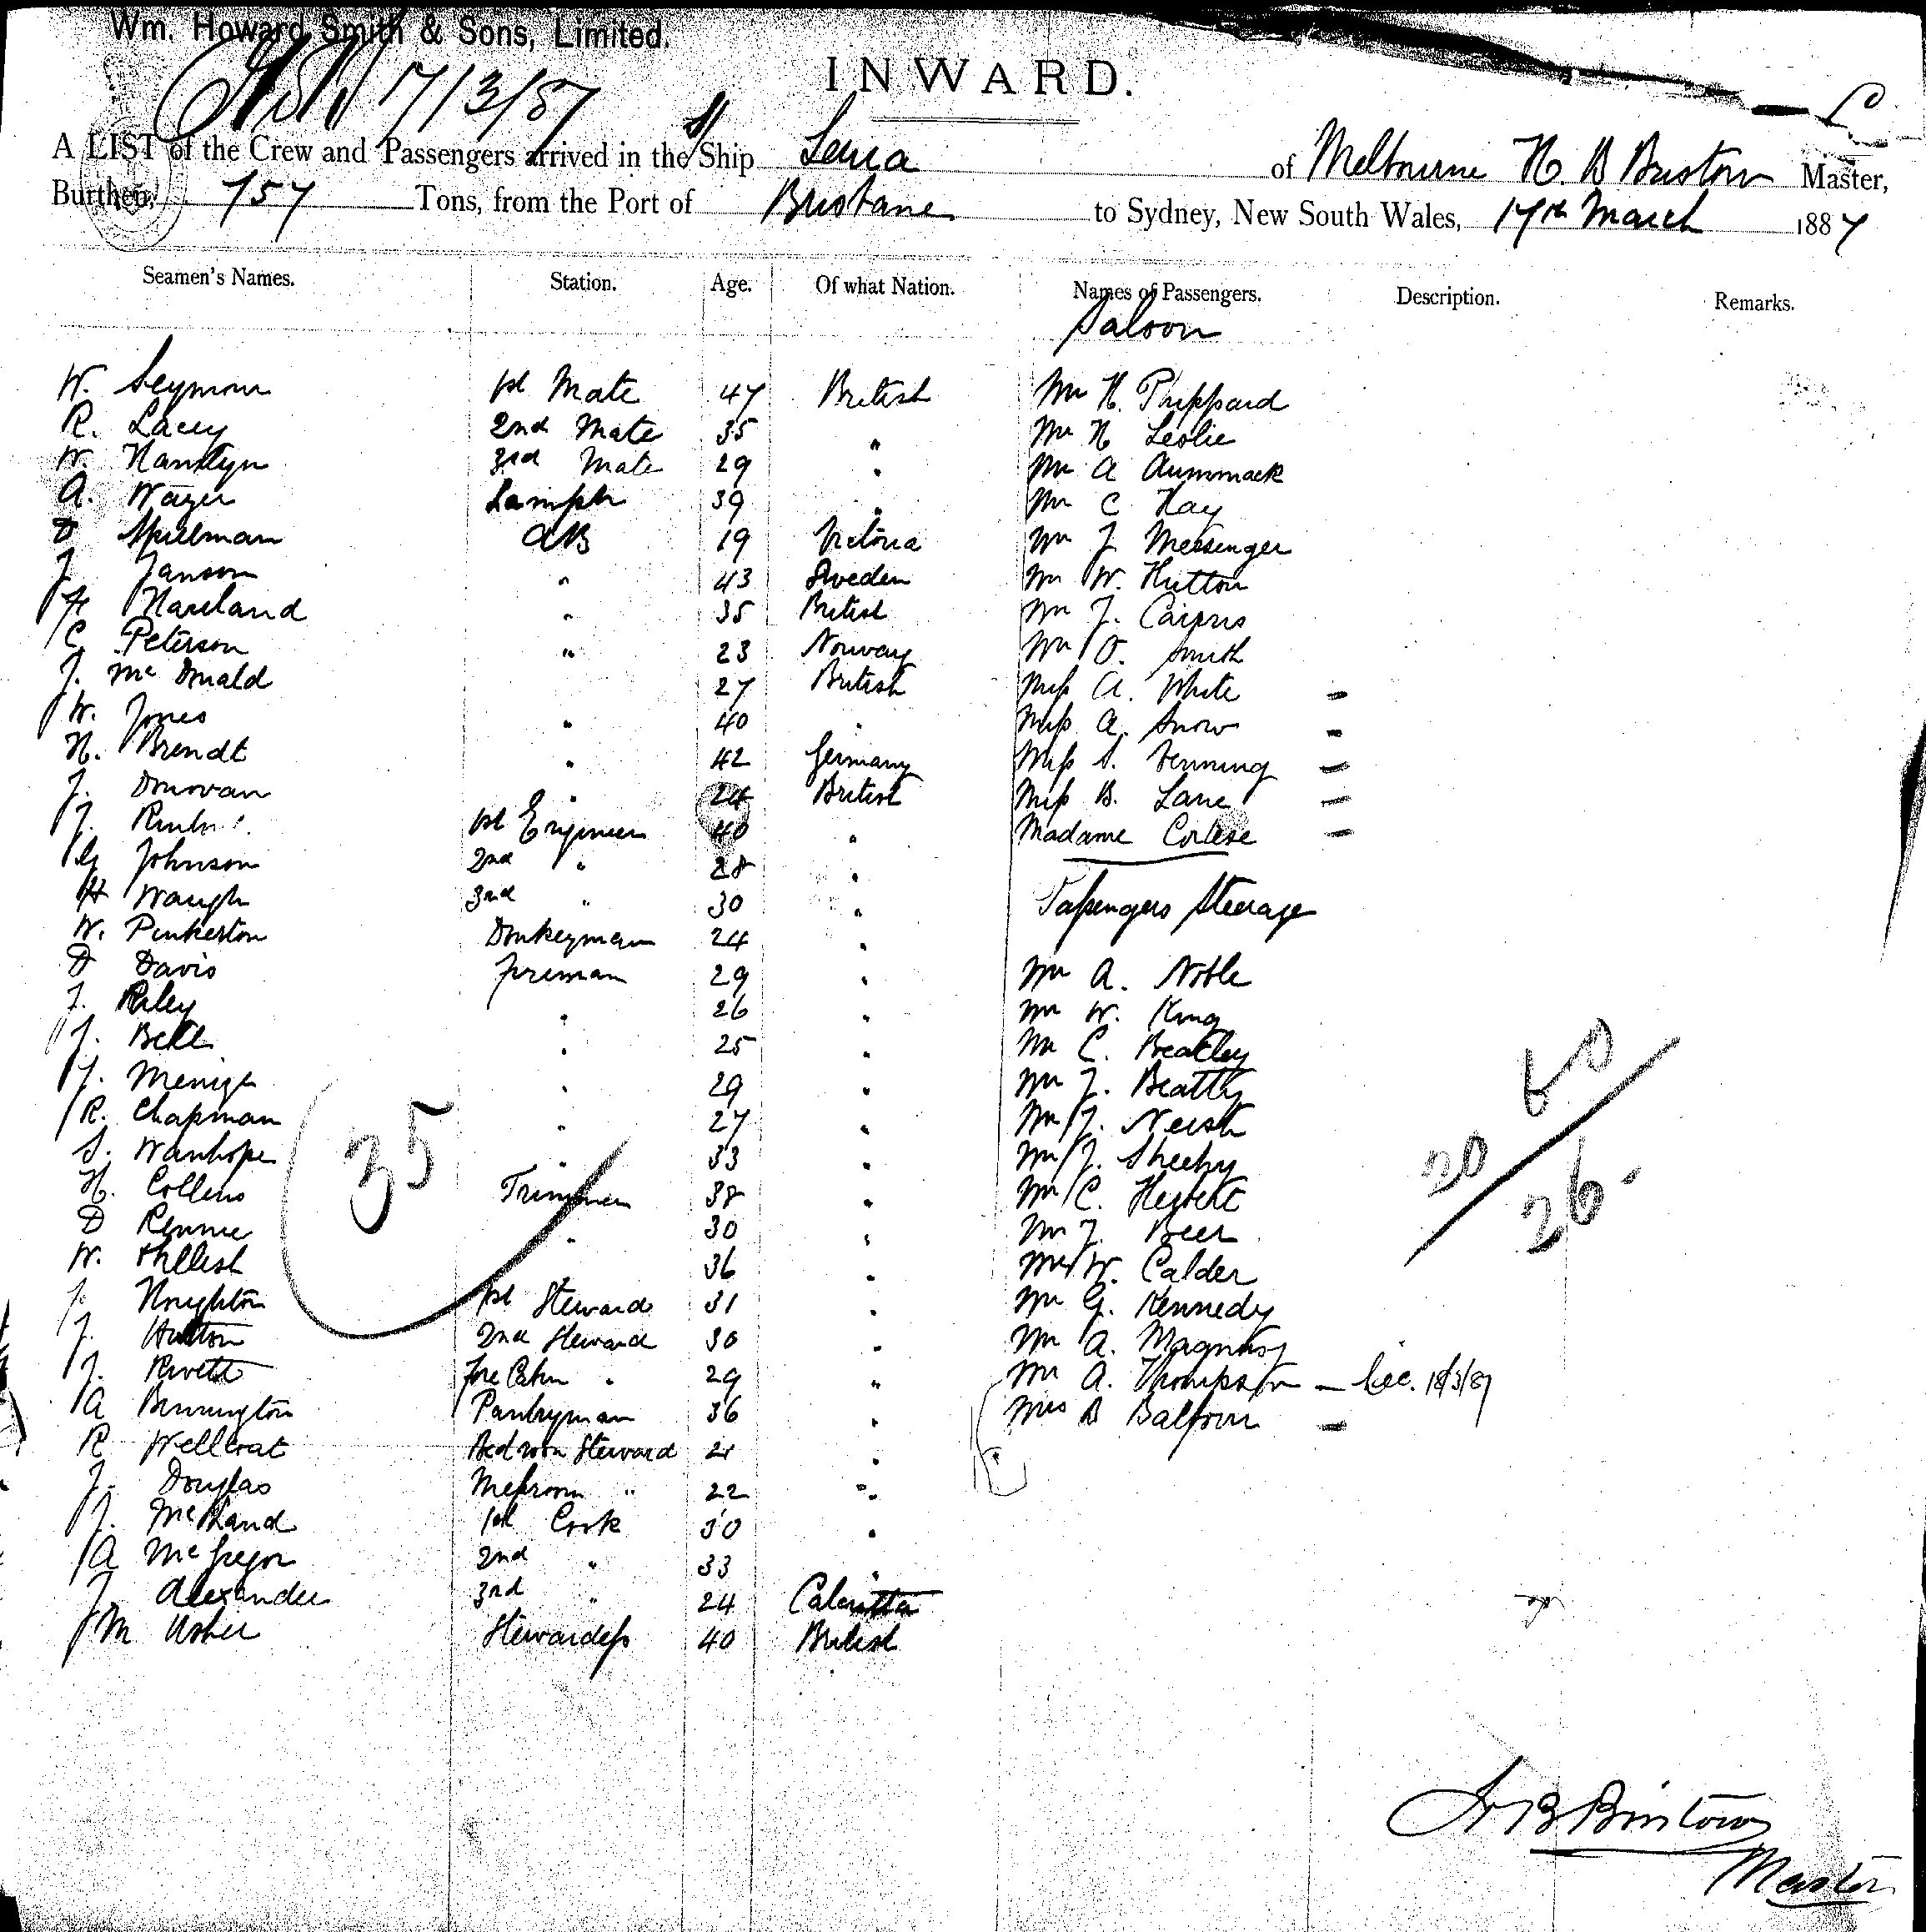 Wm. Howard Smith & Sons, Limited.
17/3/87
INWARD.
A LIST of the Crew and Passengers arrived in the S/Ship of Melbourne H. B Bristow Master,
Burthen, 757 Tons, from the Port of Brisbane to Sydney, New South Wales, 17th March 1887
Seamen's Names. Station. Age. Of what Nation. Names of Passengers. Description. Remarks.
Saloon
W. Seymour 1st Mate 47 British Mr H.
R. Lacey 2nd Mate 35 " Mr H Leslie
W. 3rd Mate 29 " Mr A
A. Lamps 39 " Mr C Hay
D Spillman AB 19 Victoria Mr J Messenger
J Janson " 43 Sweden Mr W. Hutton
" 35 British Mr J. Cairns
C. Peterson " 23 Norway Mr O. Smith
J. McDonald 27 British Miss A. White -
W. Jones " 40 " Miss A. Snow -
H. Brendt " 42 Germany Miss S. Venning -
J. Donovan " 24 British Miss B. Lane -
J. 1st Engineer 40 " Madame -
G Johnson 2nd " 28 "
H Waugh 3rd " 30 " Passengers Steerage
W. Pinkerton Donkeyman 24 "
D Davis Fireman 29 " Mr A. Noble
J. Raley " 26 " Mr W. King
J. Bell " 25 " Mr C. Beatley
J. " 29 " Mr J. Beatty
R. Chapman " 27 " Mr J. Neish
S. Wanhope " 33 " Mr J. Sheehy
H. Collins Trimmer 38 " Mr C. Herbert
D Rennie " 30 " Mr J. Beer
W. 36 " Mr W. Calder
J. Houghton 1st Steward 31 " Mr G. Kennedy
J. Hutton 2nd Steward 30 " Mr A. Magnus
J. Rivett Fore Cabin " 29 " Mr A. Thompson - 18/3/87
A Bennington Pantryman 36 " Mrs B Balfour -
R Bedroom Steward 21 "
J. Douglas Messroom " 22 "
J. 1st Cook 30 "
A McGregor 2nd " 33 "
J Alexander 3rd " 24 Calcutta
M Usher Stewardess 40 British
35
60
20
26.
H B Bristow
Master